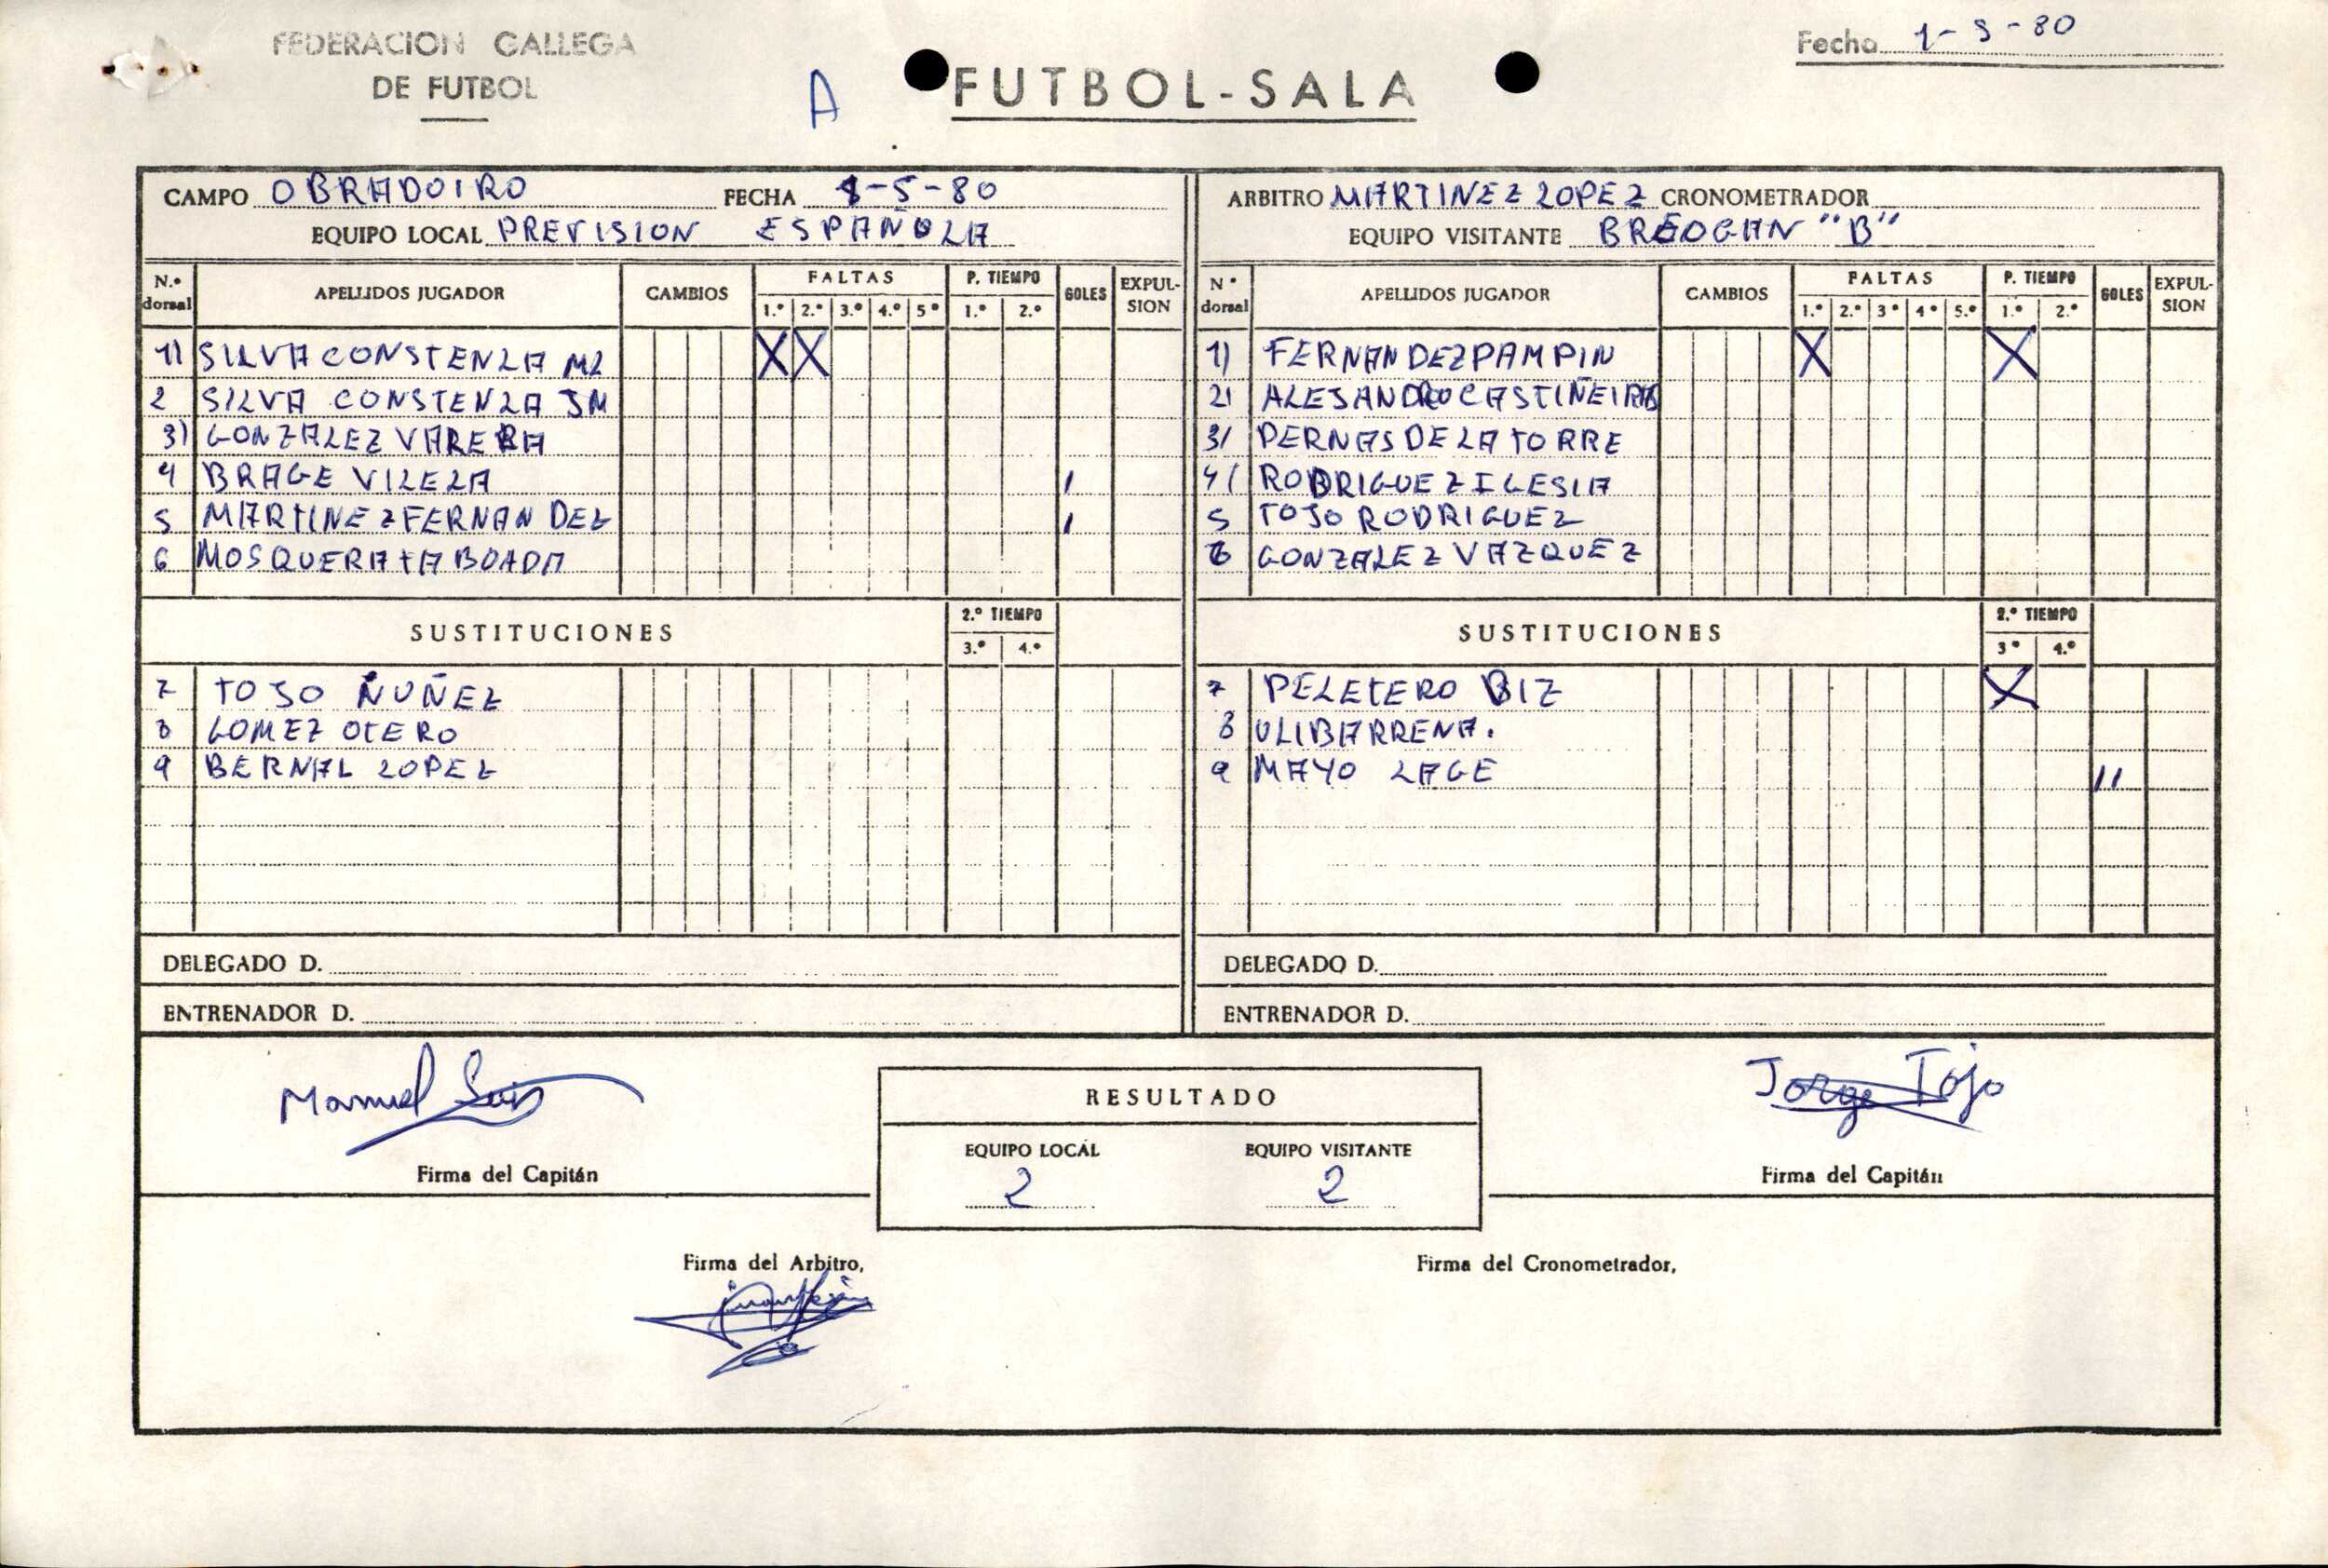 FEDERACION GALLEGA
DE FUTBOL
A
FUTBOL-SALA
Fecha 1-5-80
CAMPO OBRADOIRO FECHA 1-5-80
EQUIPO LOCAL PREVISION ESPAÑOLA
ARBITRO MARTINEZ LOPEZ CRONOMETRADOR
EQUIPO VISITANTE BREOGAN "B"
N.º dorsal APELLIDOS JUGADOR CAMBIOS FALTAS 1.º 2.º 3.º 4.º 5º P. TIEMPO 1.º 2.º GOLES EXPULSION
1) SILVA CONSTENLA ML X X
2 SILVA CONSTENLA JM
3) GONZALEZ VARELA
4 BRAGE VILELA /
5 MARTINEZ FERNANDEZ /
6 MOSQUERA TABOADA
SUSTITUCIONES 2.º TIEMPO 3.º 4.º
7 TOJO NUÑEZ
8 GOMEZ OTERO
9 BERNAL LOPEZ
DELEGADO D.
ENTRENADOR D.
Nº dorsal APELLIDOS JUGADOR CAMBIOS FALTAS 1.º 2.º 3º 4º 5.º P. TIEMPO 1.º 2.º GOLES EXPULSION
1) FERNANDEZ PAMPIN X X
2) ALEJANDRO CASTIÑEIRAS
3/ PERNAS DE LA TORRE
4/ RODRIGUEZ IGLESIA
5 TOJO RODRIGUEZ
6 GONZALEZ VAZQUEZ
SUSTITUCIONES 2.º TIEMPO 3º 4.º
7 PELETERO BIZ X
8 ULIBARRENA.
9 MAYO LAGE //
DELEGADO D.
ENTRENADOR D.
Manuel Luis
Firma del Capitán
RESULTADO
EQUIPO LOCAL EQUIPO VISITANTE
2 2
Jorge Tojo
Firma del Capitán
Firma del Arbitro,
Firma del Cronometrador,